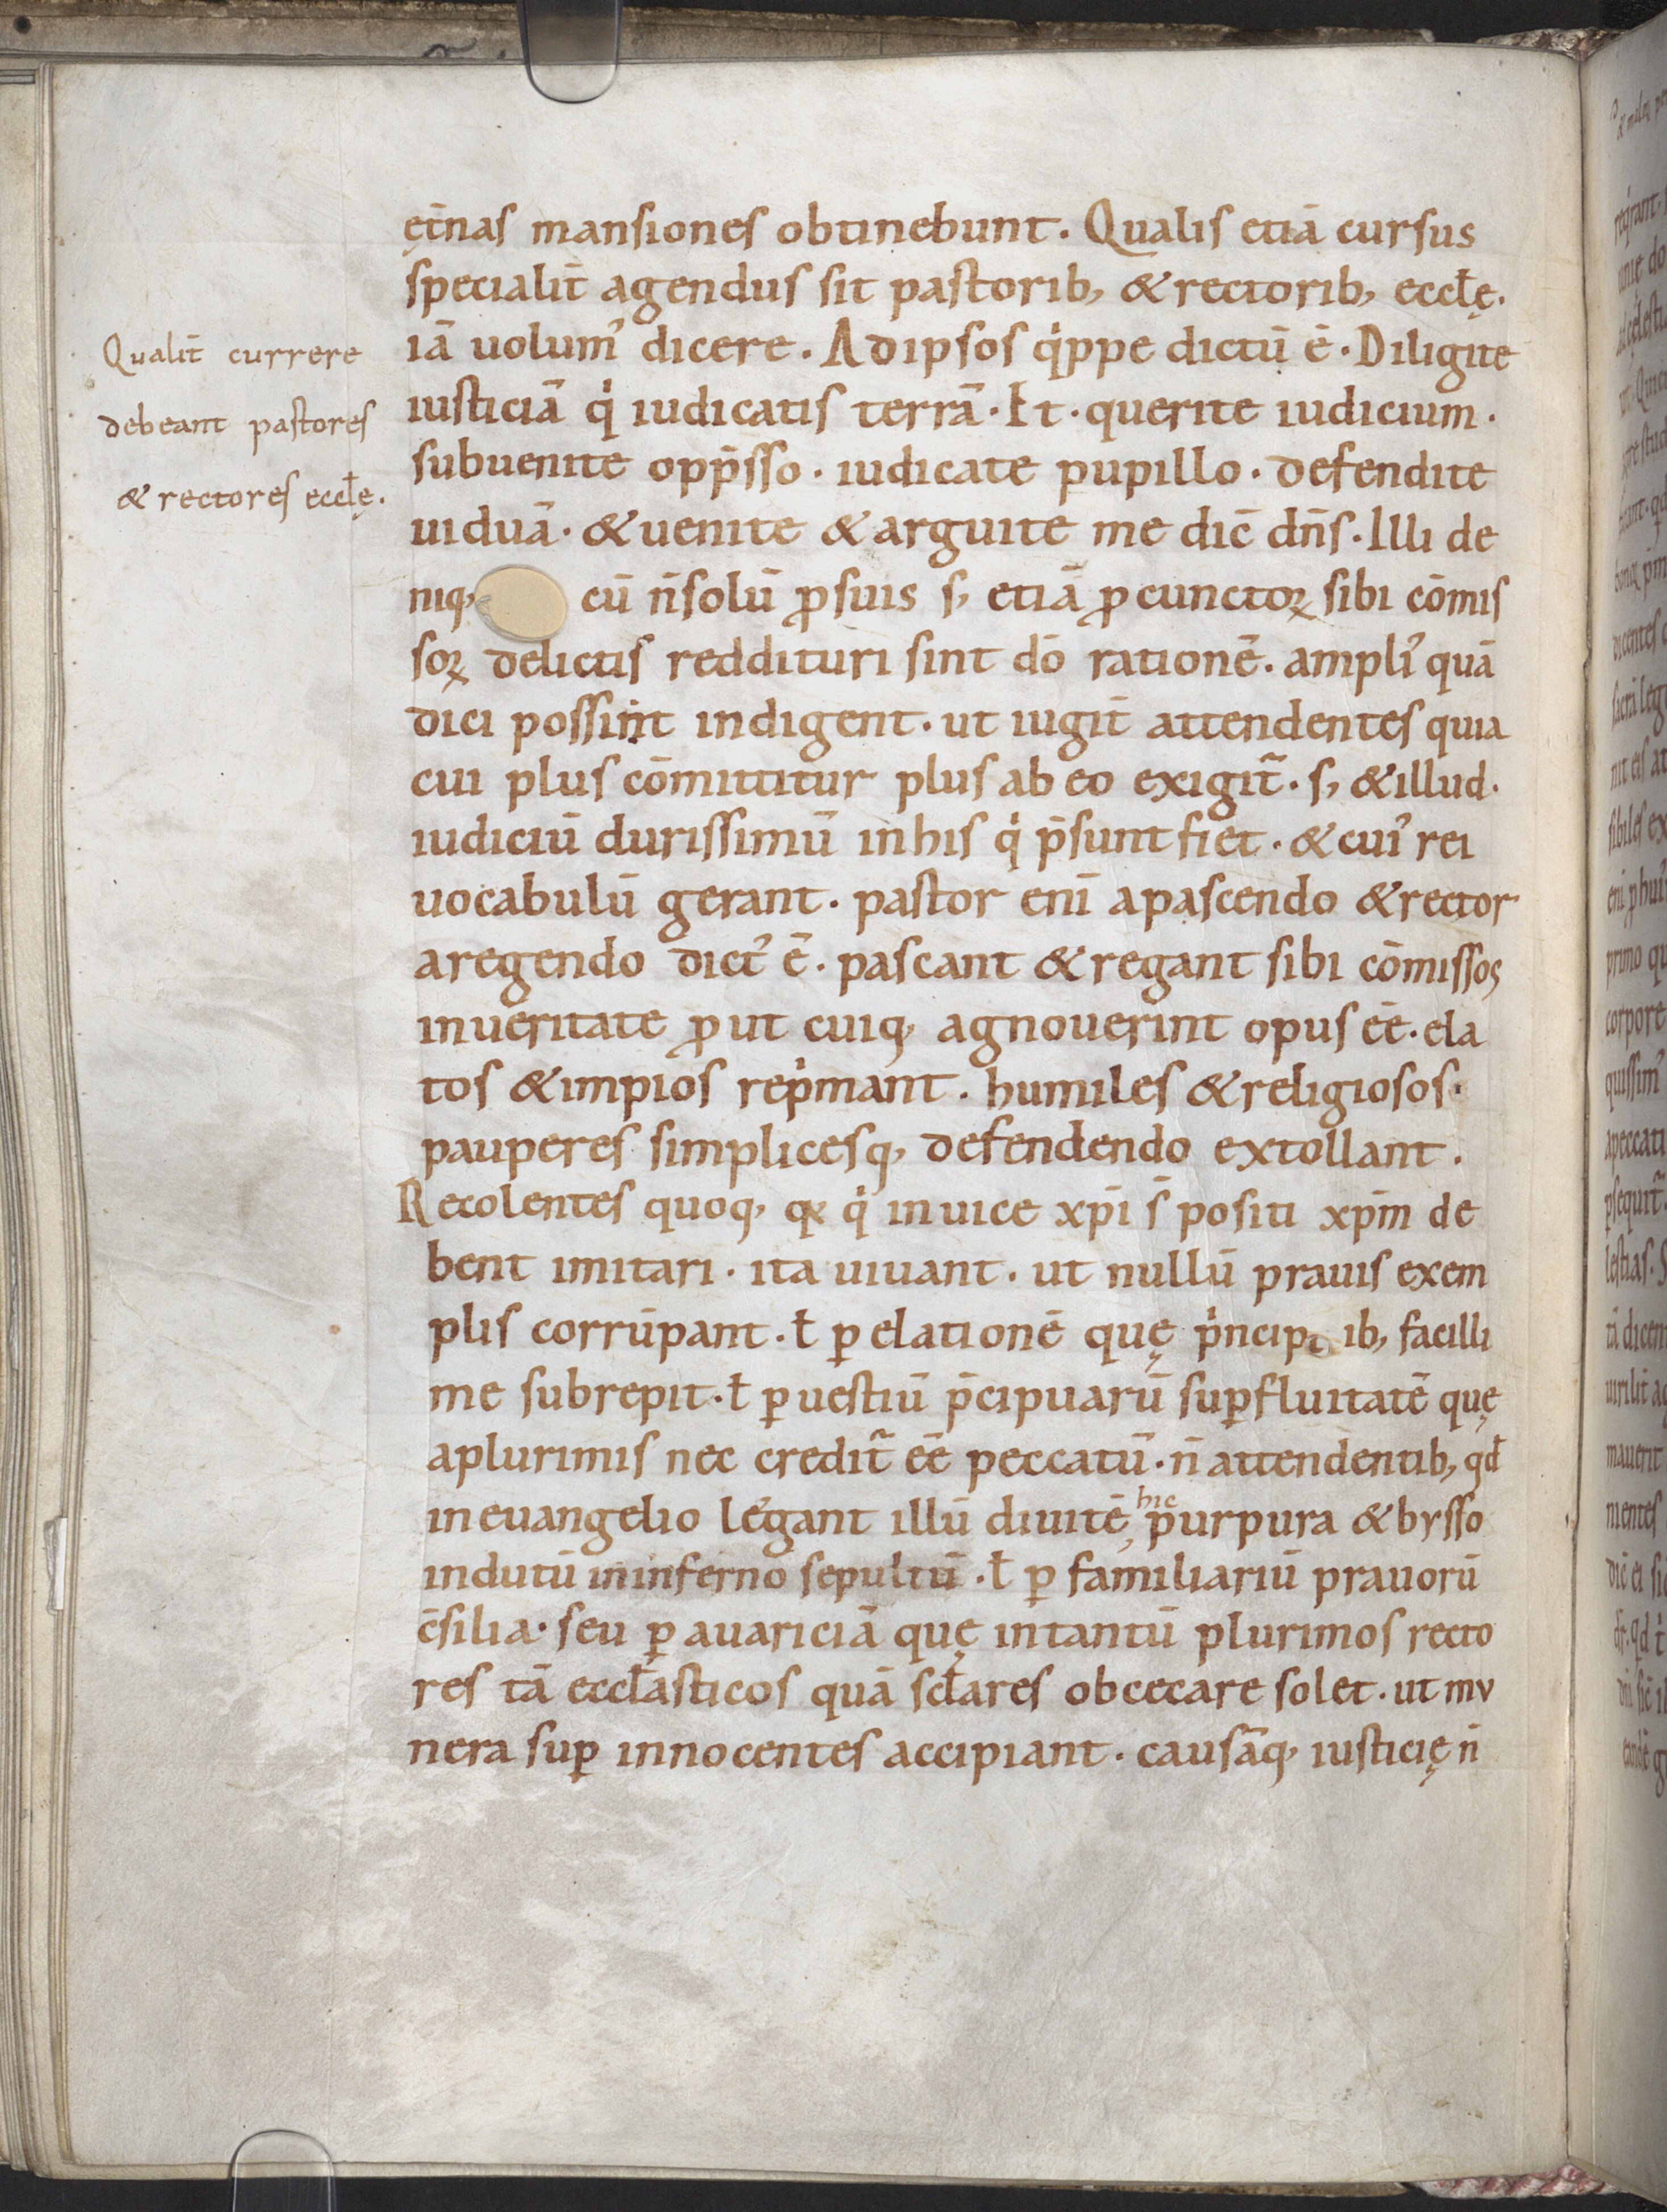 ęt̄nas mansiones obtinebunt. Qualis etiā cursus
specialit̄ agendus sit pastorib; & rectorib; eccłę.
iā uolum᾽ dicere. Ad ipsos q̍ppe dictū ē. Diligite
iusticiā q̍ iudicatis terrā. Et. querite iudicium.
subuenite opp̄sso. iudicate pupillo. defendite
uiduā. & uenite & arguite me dic̄ dn̄s. Illi de
niq; cū n̄ solū ꝓ suis s; etiā ꝓ cunctoꝝ sibi cōmis
soꝝ delictis reddituri sint dō rationē. ampli᾽ quā
dici possint indigent. ut iugit̄ attendentes quia
cui plus cōmittitur plus ab eo exigit᷑. s; & illud.
iudiciū durissimū in his q̍ p̄sunt fiet. & cui᾽ rei
uocabulū gerant. pastor enī a pascendo & rector
a regendo dict᾽ ē. pascant & regant sibi cōmissos
in ueritate ꝓut cuiq; agnouerint opus eē. ela
tos & impios rep̍mant. humiles & religiosos.
pauperes simplicesq; defendendo extollant.
Recolentes quoq; qꝫ q̍ in uice xp̄i s̄ positi xp̄m de
bent imitari. ita uiuant. ut nullū prauis exem
plis corrūpant. ł ꝑ elationē quę p̍ncipib; facilli
me subrepit. ł ꝑ uestiū p̄cipuarū suꝑfluitatē quę
a plurimis nec credit᷑ eē peccatū. n̄ attendentib; qđ
in euangelio legant illū diuitē, hic purpura & bysso
indutū in inferno sepultū. ł ꝑ familiariū prauorū
c̄silia. seu ꝑ auariciā quę in tantū plurimos recto
res tā eccłasticos quā scłares obcecare solet. ut mu
nera suꝑ innocentes accipiant. causāq; iusticię n̄
Qualit̄ currere
debeant pastores
& rectores eccłę.